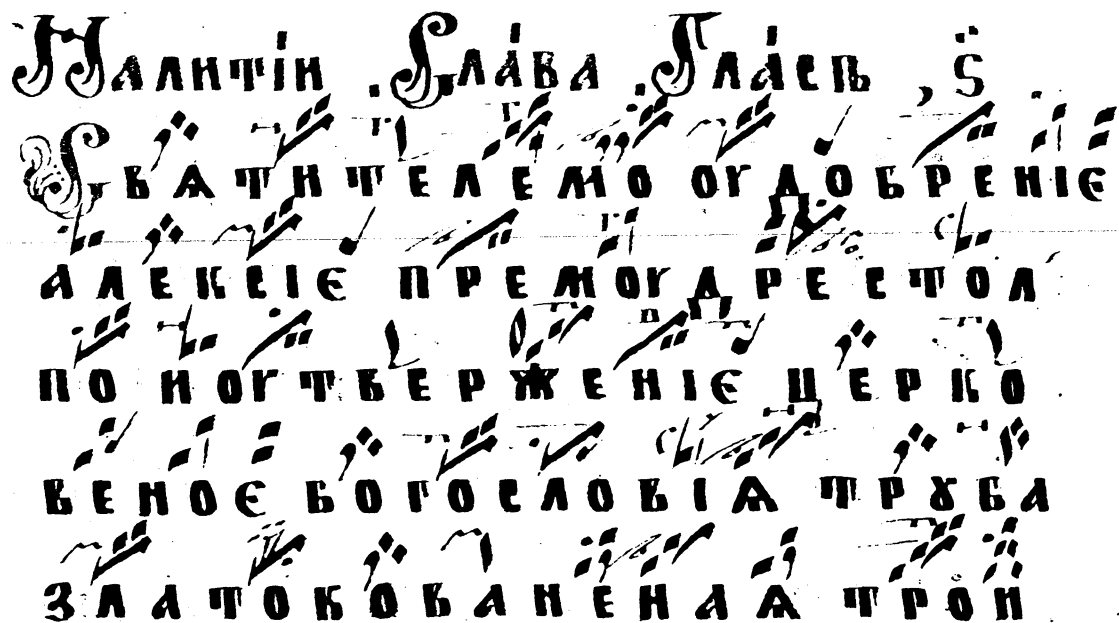 Налитїи Сла́ва Гла́съ , ѕ҃
Свѧтителемо оудобренїє
алексїє премоудре стол
по ноутверженїє церко
веноє богословїѧ трꙋба
златокованенаѧ трои